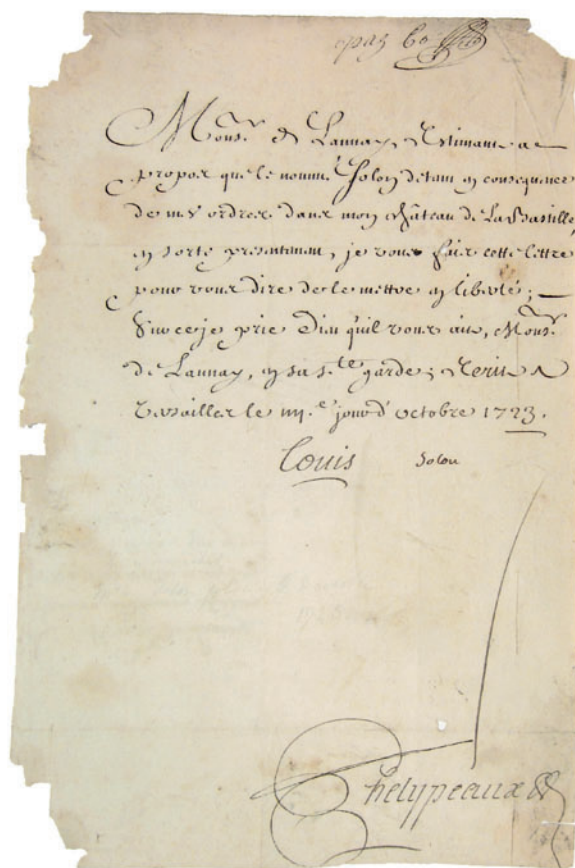 Monsr. de Launay, Estimant a
propos que le nommé Solon detenu en consequence
de mes ordres dans mon château de La Bastille,
en sorte presentement, je vous fais cette lettre
pour vous dire de le mettre en liberté;
Sur ce je prie Dieu qu'il vous ait, Monsr.
de Launay, en sa ste garde; Ecrit a
Versailles le jour d'octobre 1723.
Louis Solon
Phelypeaux